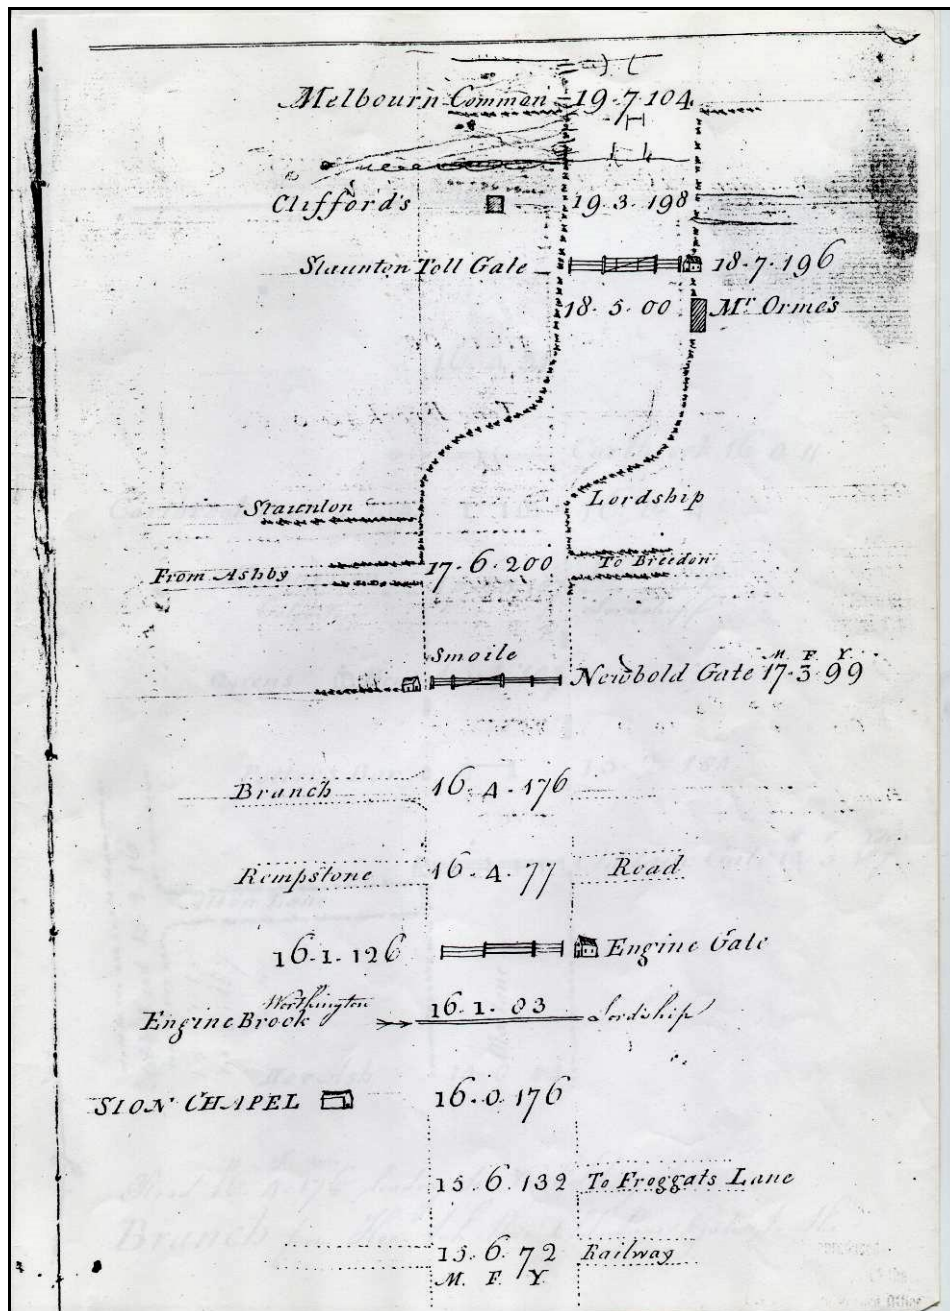 Melbourn Common 19.7.104
Clifford's 19.3.198
Staunton Toll Gate 18.7.196
18.5.00 Mr Orme's
Staunton Lordship
From Ashby 17.6.200 To Breedon
Smoile
M F Y
Newbold Gate 17.3.99
Branch 16.4.176
Rempstone 16.4.77 Road
16.1.126 Engine Gate
Worthington
Engine Brook 16.1.83 Lordship
SION CHAPEL 16.0.176
15.6.132 To Froggats Lane
15.6.72 Railway
M. F. Y.
Branch